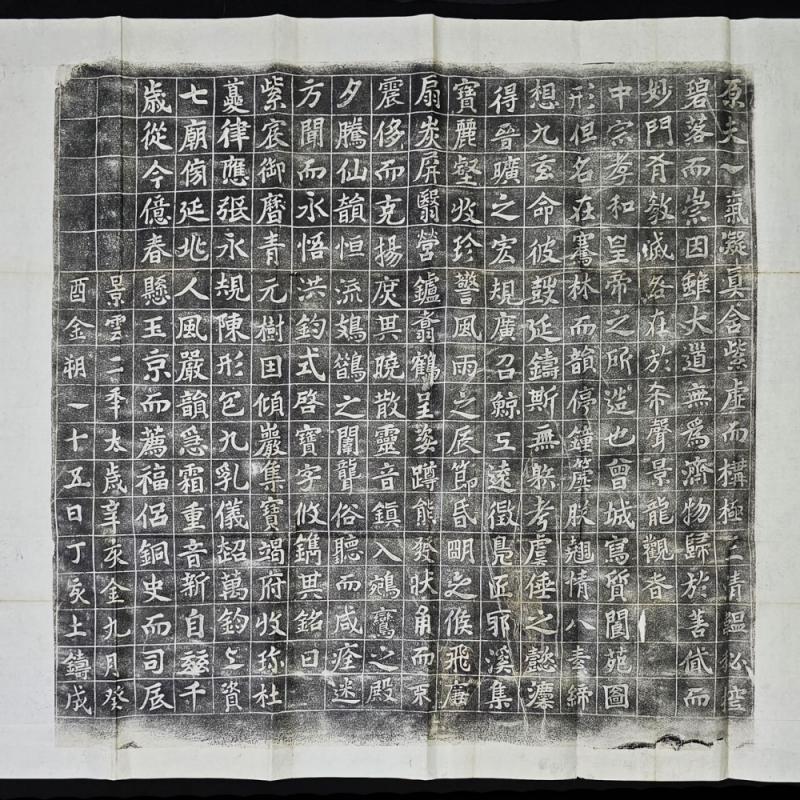 原夫一氣凝真含紫虛而構極三清韞祕控
碧落而崇因雖大道無為濟物歸於善貸而
妙門有教滅咎在於希聲景龍觀者
中宗孝和皇帝之所造也曾城寫質閬苑圖
形但名在騫林而韻停鐘虡朕翹情八素締
想九玄命彼鼖延鑄斯無射考虞倕之懿灋
得晉曠之宏規廣召鯨工遠徵鳧匠耶溪集
寶麗壑收珍警風雨之辰節昏明之候飛廉
扇炭屏翳營鑪翥鶴呈姿蹲熊發狀角而不
震侈而克揚庶其曉散靈音鎮入鵷鸞之殿
夕騰仙韻恒流鳷鵲之闈聾俗聽而咸痊迷
方聞而永悟洪鈞式啓寶字攸鐫其銘曰
紫宸御曆青元樹因傾巖集寶竭府收珍杜
夔律應張永規陳形包九乳儀超萬鈞上資
七廟傍延兆人風嚴韻急霜重音新自茲千
歲從今億春懸玉京而薦福侶銅史而司辰
景雲二年太歲辛亥金九月癸
酉金朔一十五日丁亥土鑄成